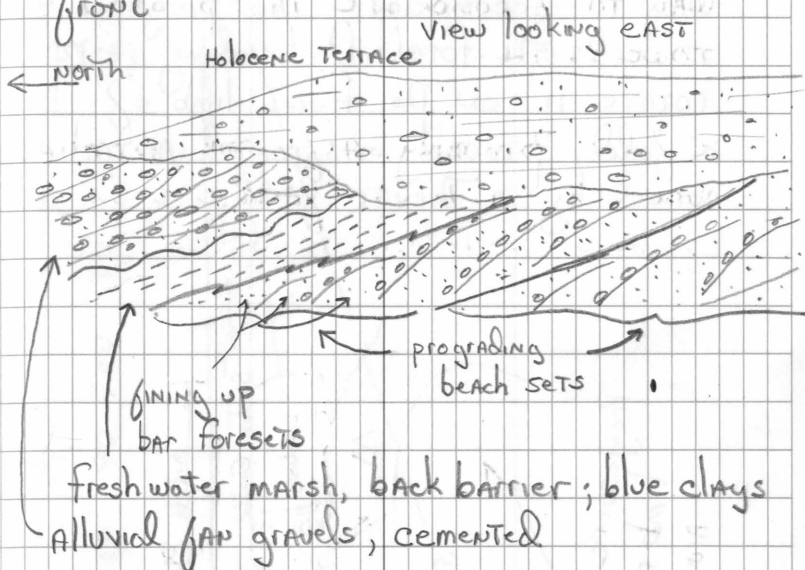 front
View looking EAST
North
Holocene Terrace
prograding
beach sets
fining up
bar foresets
freshwater marsh, back barrier; blue clays
alluvial fan gravels, cemented